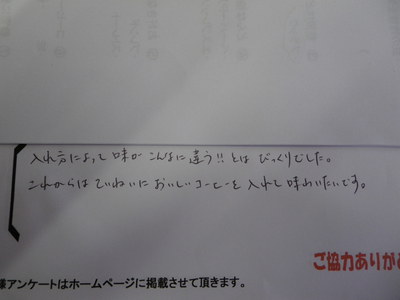 入れ方によって味がこんなに違う!!とはびっくりでした。
これからはていねいにおいしいコーヒーを入れて味わいたいです。
ご協力ありが
様アンケートはホームページに掲載させて頂きます。